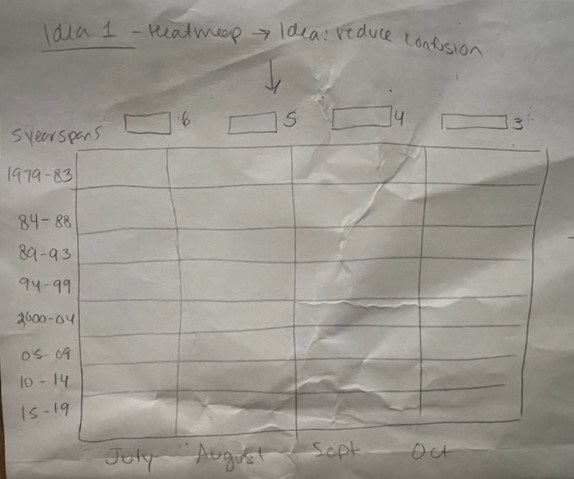 Idea 1 - Heatmap → Idea: reduce confusion
6 5 4 3
5 year spans
1979-83
84-88
89-93
94-99
2000-04
05-09
10-14
15-19
July August Sept Oct